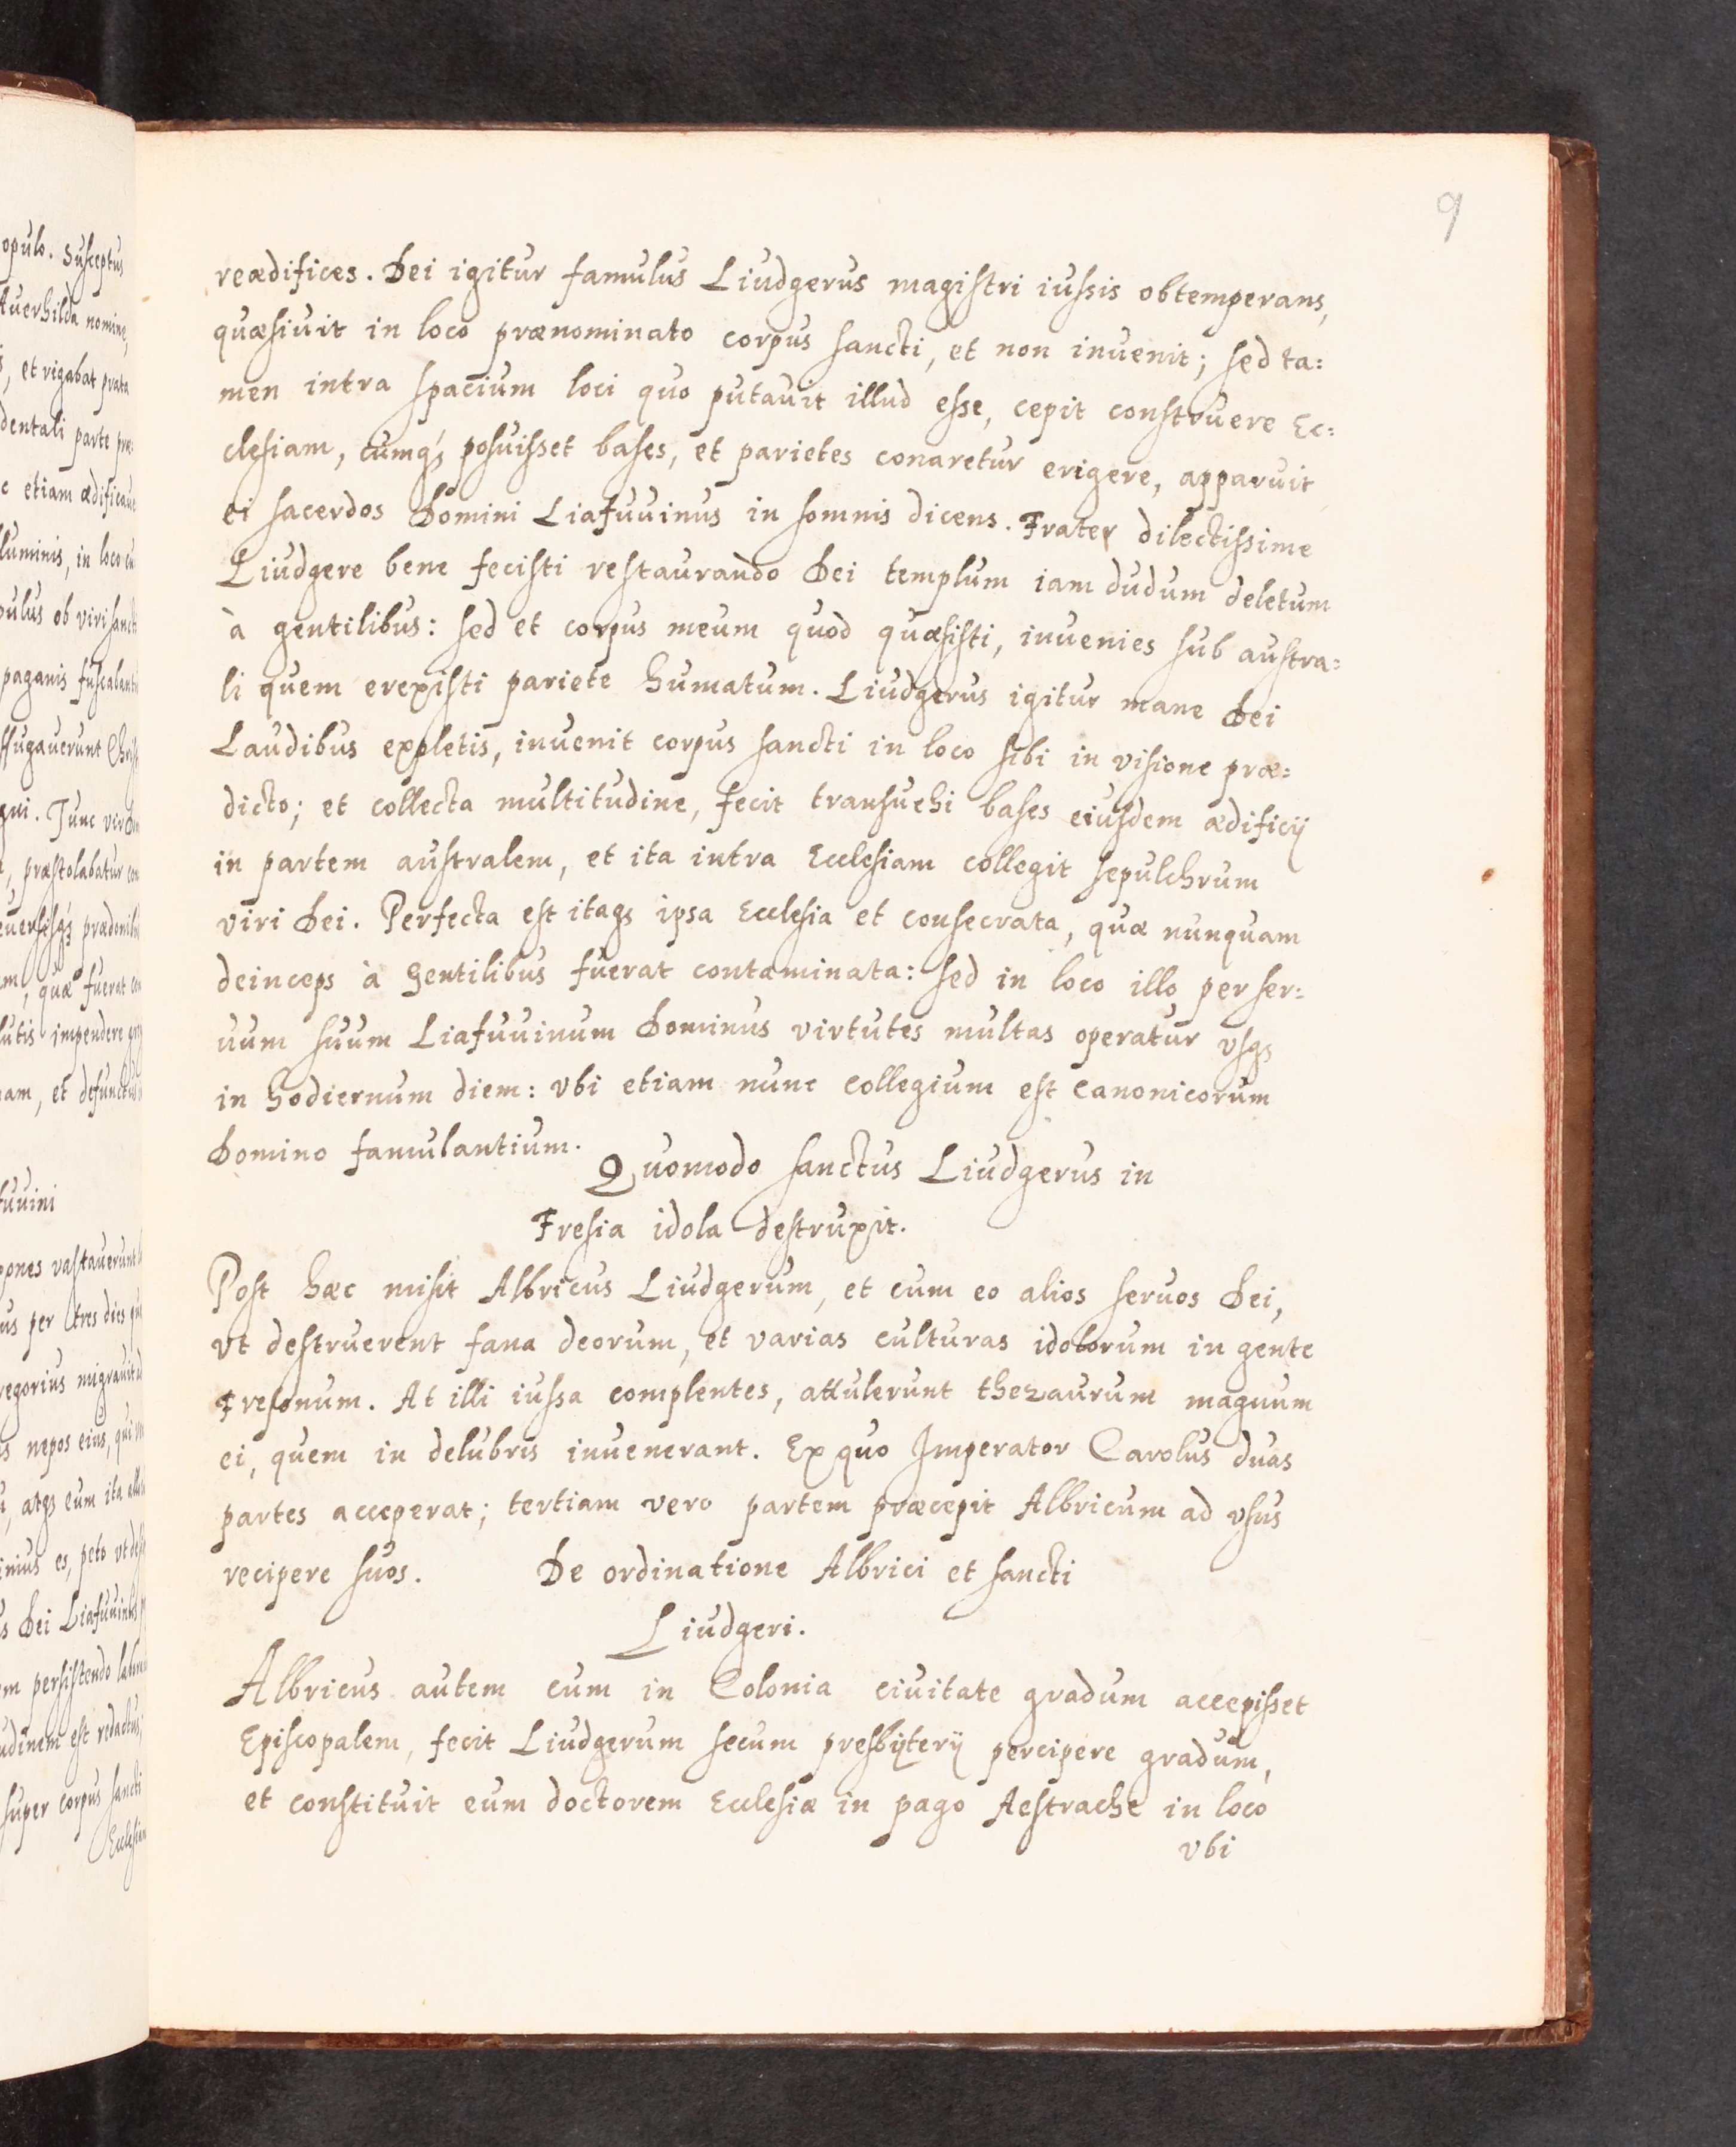 opulo. Susceptus
Auerhilda nomine,
, et rigabat prata
dentali parte præ:
c etiam ædificaue
luminis, in loco cu
pulus ob viri sancti
paganis fuscalanti
ffugauerunt Christ
gni. Tunc vir Dom
, præstolabatur con
euersisqꝫ prædonibus
m, quæ fuerat con
lutis impendere greg
nam, et defunctus
fuuini
xones vastauerunt
us per tres dies
regorius migrauit
s nepos eius, qui
, atqꝫ eum ita
inius es, peto vt
s Dei Liafuuinus
m persistendo
udinem est redactus,
super corpus sancti
Ecclesiam
9
reædifices. Dei igitur famulus Liudgerus magistri iussis obtemperans,
quæsiuit in loco prænominato corpus sancti, et non inuenit; sed ta:
men intra spacium loci quo putauit illud esse, cepit construere Ec:
clesiam, cumqꝫ posuisset bases, et parietes conaretur erigere, apparuit
ei sacerdos Domini Liafuuinus in somnis dicens. Frater dilectissime
Liudgere bene fecisti restaurando Dei templum iam dudum deletum
à gentilibus: sed et corpus meum quod quæsisti, inuenies sub austra:
li quem erexisti pariete humatum. Liudgerus igitur mane Dei
Laudibus expletis, inuenit corpus sancti in loco sibi in visione præ:
dicto; et collecta multitudine, fecit transuehi bases eiusdem ædificij
in partem australem, et ita intra Ecclesiam collegit sepulchrum
viri Dei. Perfecta est itaqꝫ ipsa Ecclesia et consecrata, quæ nunquam
deinceps à gentilibus fuerat contaminata: sed in loco illo per ser:
uum suum Liafuuinum Dominus virtutes multas operatur vsqꝫ
in hodiernum diem: vbi etiam nunc collegium est Canonicorum
Domino famulantium.
Quomodo sanctus Liudgerus in
Fresia idola destruxit.
Post hæc misit Albricus Liudgerum, et cum eo alios seruos Dei,
vt destruerent fana deorum, et varias culturas idolorum in gente
Fresonum. At illi iussa complentes, attulerunt thezaurum magnum
ei, quem in delubris inuenerant. Ex quo Imperator Carolus duas
partes acceperat; tertiam vero partem præcepit Albricum ad vsus
recipere suos. De ordinatione Albrici et sancti
Liudgeri.
Albricus autem cum in Colonia ciuitate gradum accepisset
Episcopalem, fecit Liudgerum secum presbijterij percipere gradum,
et constituit eum doctorem Ecclesiæ in pago Aestrache in loco
vbi